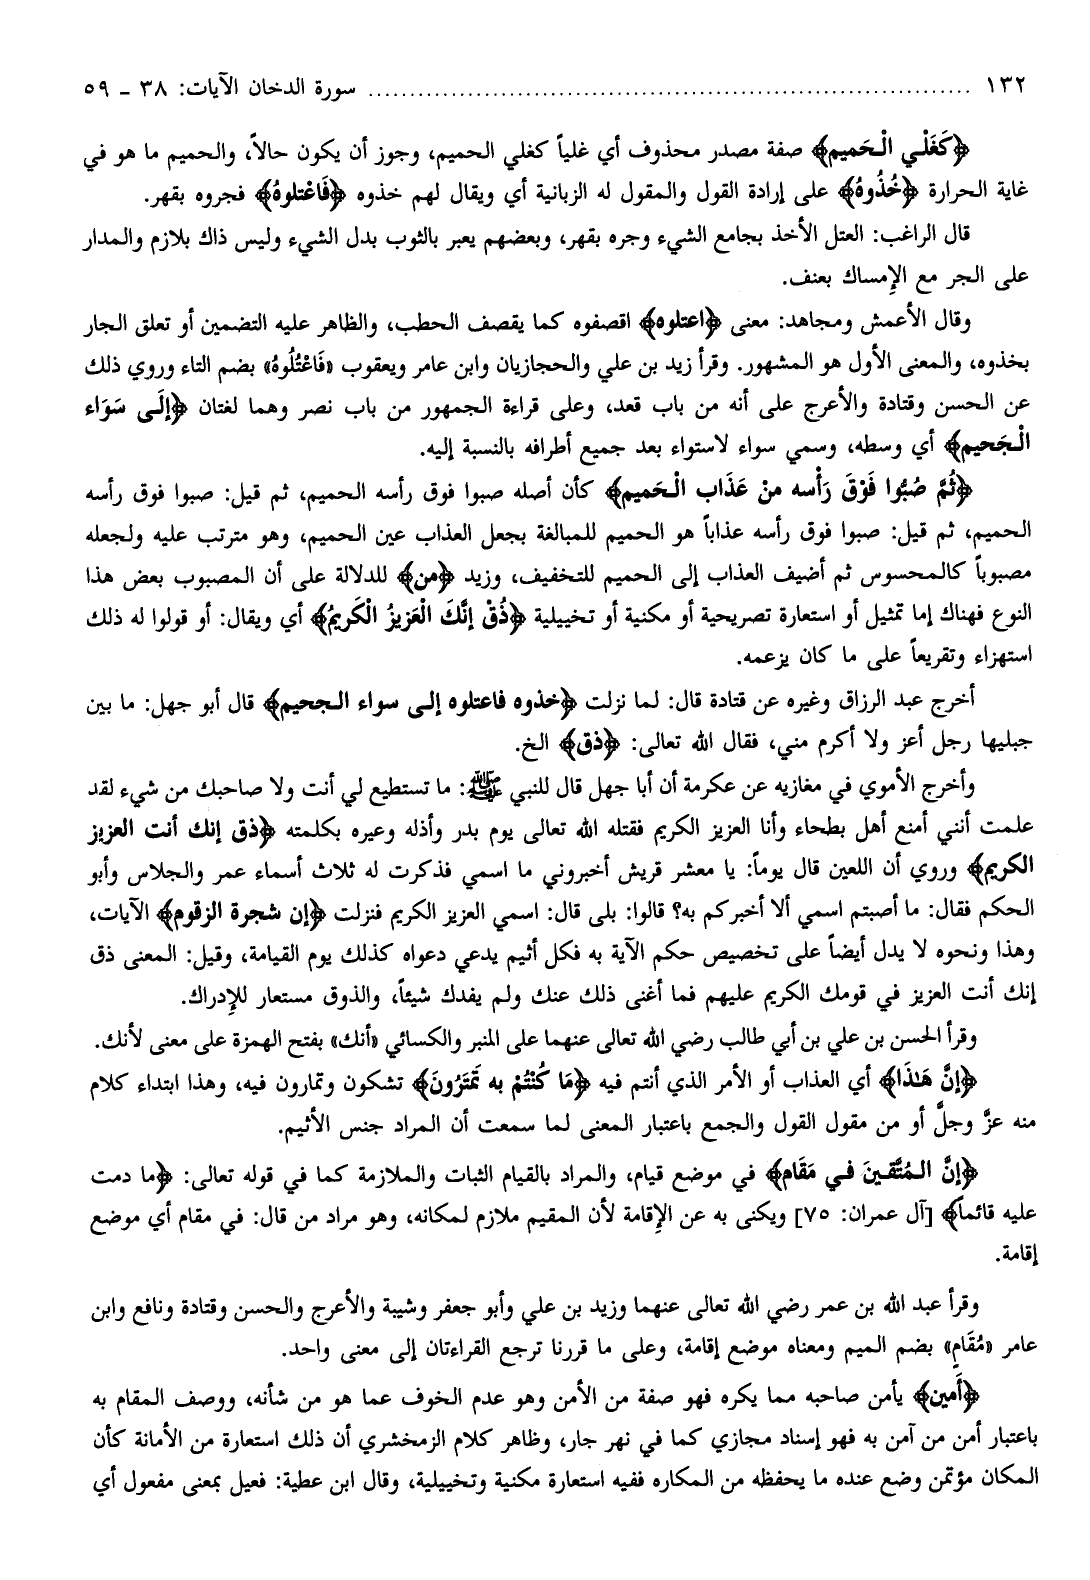 ١٣٢ ........................................................................ سورة الدخان الآيات: ٣٨ - ٥٩
﴿كَغَلْيِ الْحَمِيمِ﴾ صفة مصدر محذوف أي غلياً كغلي الحميم، وجوز أن يكون حالاً، والحميم ما هو في
غاية الحرارة ﴿خُذُوهُ﴾ على إرادة القول والمقول له الزبانية أي ويقال لهم خذوه ﴿فَاعْتلوهُ﴾ فجروه بقهر.
قال الراغب: العتل الأخذ بجامع الشيء وجره بقهر، وبعضهم يعبر بالثوب بدل الشيء وليس ذاك بلازم والمدار
على الجر مع الإمساك بعنف.
وقال الأعمش ومجاهد: معنى ﴿اعتلوه﴾ اقصفوه كما يقصف الحطب، والظاهر عليه التضمين أو تعلق الجار
بخذوه، والمعنى الأول هو المشهور. وقرأ زيد بن علي والحجازيان وابن عامر ويعقوب «فَاعْتُلُوهُ» بضم التاء وروي ذلك
عن الحسن وقتادة والأعرج على أنه من باب قعد، وعلى قراءة الجمهور من باب نصر وهما لغتان ﴿إِلَى سَوَاء
الْجَحيم﴾ أي وسطه، وسمي سواء لاستواء بعد جميع أطرافه بالنسبة إليه.
﴿ثُمَّ صُبُّوا فَوْقَ رَأْسه منْ عَذَاب الْحَميم﴾ كأن أصله صبوا فوق رأسه الحميم، ثم قيل: صبوا فوق رأسه
الحميم، ثم قيل: صبوا فوق رأسه عذاباً هو الحميم للمبالغة بجعل العذاب عين الحميم، وهو مترتب عليه ولجعله
مصبوباً كالمحسوس ثم أضيف العذاب إلى الحميم للتخفيف، وزيد ﴿من﴾ للدلالة على أن المصبوب بعض هذا
النوع فهناك إما تمثيل أو استعارة تصريحية أو مكنية أو تخييلية ﴿ذُقْ إنَّكَ الْعَزيزُ الْكَريمُ﴾ أي ويقال: أو قولوا له ذلك
استهزاء وتقريعاً على ما كان يزعمه.
أخرج عبد الرزاق وغيره عن قتادة قال: لما نزلت ﴿خذوه فاعتلوه إلى سواء الجحيم﴾ قال أبو جهل: ما بين
جبليها رجل أعز ولا أكرم مني، فقال الله تعالى: ﴿ذق﴾ الخ.
وأخرج الأموي في مغازيه عن عكرمة أن أبا جهل قال للنبي ﷺ: ما تستطيع لي أنت ولا صاحبك من شيء لقد
علمت أنني أمنع أهل بطحاء وأنا العزيز الكريم فقتله الله تعالى يوم بدر وأذله وعيره بكلمته ﴿ذق إنك أنت العزيز
الكريم﴾ وروي أن اللعين قال يوماً: يا معشر قريش أخبروني ما اسمي فذكرت له ثلاث أسماء عمر والجلاس وأبو
الحكم فقال: ما أصبتم اسمي ألا أخبركم به؟ قالوا: بلى قال: اسمي العزيز الكريم فنزلت ﴿إن شجرة الزقوم﴾ الآيات،
وهذا ونحوه لا يدل أيضاً على تخصيص حكم الآية به فكل أثيم يدعي دعواه كذلك يوم القيامة، وقيل: المعنى ذق
إنك أنت العزيز في قومك الكريم عليهم فما أغنى ذلك عنك ولم يفدك شيئاً، والذوق مستعار للإدراك.
وقرأ الحسن بن علي بن أبي طالب رضي الله تعالى عنهما على المنبر والكسائي «أنك» بفتح الهمزة على معنى لأنك.
﴿إنَّ هَـٰذَا﴾ أي العذاب أو الأمر الذي أنتم فيه ﴿مَا كُنْتُمْ به تَمْتَرُونَ﴾ تشكون وتمارون فيه، وهذا ابتداء كلام
منه عزَّ وجلَّ أو من مقول القول والجمع باعتبار المعنى لما سمعت أن المراد جنس الأثيم.
﴿إنَّ المُتَّقينَ في مَقَام﴾ في موضع قيام، والمراد بالقيام الثبات والملازمة كما في قوله تعالى: ﴿ما دمت
عليه قائماً﴾ [آل عمران: ٧٥] ويكنى به عن الإقامة لأن المقيم ملازم لمكانه، وهو مراد من قال: في مقام أي موضع
إقامة.
وقرأ عبد الله بن عمر رضي الله تعالى عنهما وزيد بن علي وأبو جعفر وشيبة والأعرج والحسن وقتادة ونافع وابن
عامر «مُقَامٍ» بضم الميم ومعناه موضع إقامة، وعلى ما قررنا ترجع القراءتان إلى معنى واحد.
﴿أَمين﴾ يأمن صاحبه مما يكره فهو صفة من الأمن وهو عدم الخوف عما هو من شأنه، ووصف المقام به
باعتبار أمن من آمن به فهو إسناد مجازي كما في نهر جار، وظاهر كلام الزمخشري أن ذلك استعارة من الأمانة كأن
المكان مؤتمن وضع عنده ما يحفظه من المكاره ففيه استعارة مكنية وتخييلية، وقال ابن عطية: فعيل بمعنى مفعول أي